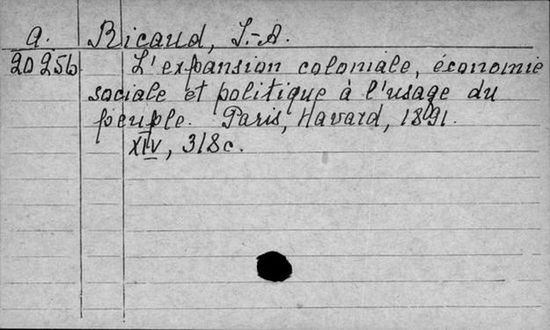 a. Ricaud, J.-A.
20 256 L'expansion coloniale, économie
sociale et politique à l'usage du
peuple. Paris, Havard, 1891.
XIV, 318c.